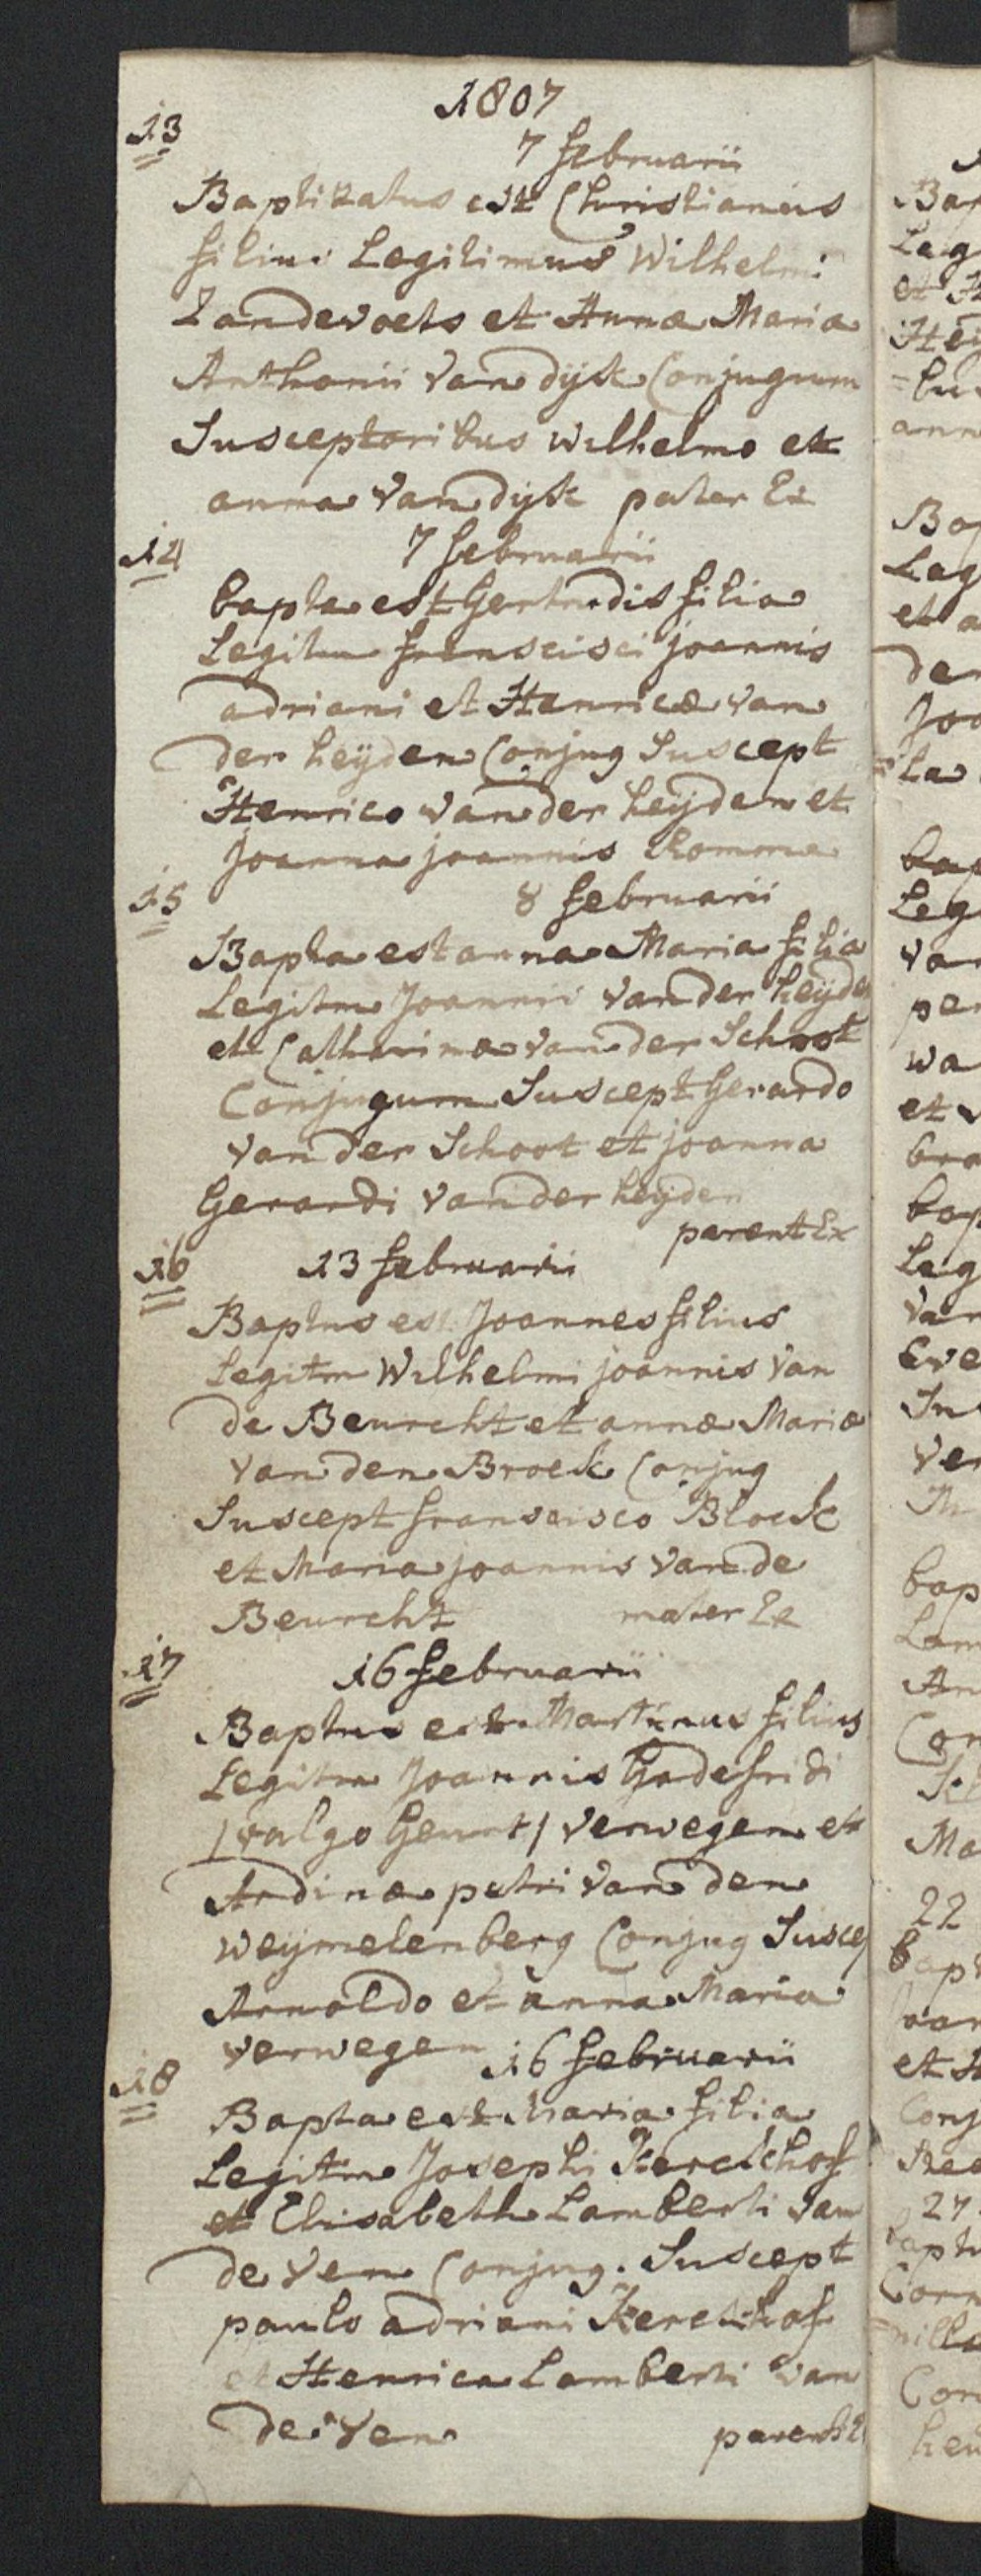 1807
13
7 februarii
Baptizatus est Christianus
filius Legitimus Wilhelmi
Zandevoets et Annæ Maria
Anthonii van dijk Conjugum
Susceptoribus Wilhelmo et
anna van dijk pater Ex
14
7 februarii
bapta est Gertrudis filia
Legitm franscisci joannis
adriani et Henricæ van
der heijden Conjug Suscept
Henrico van der heijden et
joanna joannis
15
8 februarii
Bapta est anna Maria filia
Legitm Joannis van der heijden
et Catharinæ van der Schoot
Conjugum Suscept Gerardo
van der Schoot et joanna
Gerardi van der heijden
parent Ex
16
13 februarii
Baptus est Joannes filius
Legitm Wilhelmi joannis van
de Beurcht et annæ Mariæ
van den Broek Conjug
Suscept franscisco Block
et Maria joannis van de
Beurcht mater Ex
17
16 februarii
Baptus est Martinus filius
Legitm Joannis Godefridi
/vulgo Geurt/ verwegen et
Ardinæ petri van den
weijmelenberg Conjug Suscep
Arnoldo et anna Maria
verwegen
18
16 februarii
Bapta est Maria filia
Legitm Josephi Kerckhof
et Elisabeth Lamberti van
de Ven Conjug. Suscept
paulo adriani Kerckhof
et Henrica Lamberti van
de Ven parent E
Bap
Leg
et
ann
Bap
Leg
et a
der
Joa
bap
Leg
van
per
wa
et
bra
bap
Leg
van
In
ver
bap
Lam
An
Con
Ma
22
bapt
et H
Conj
27
bapt
Corn
Con